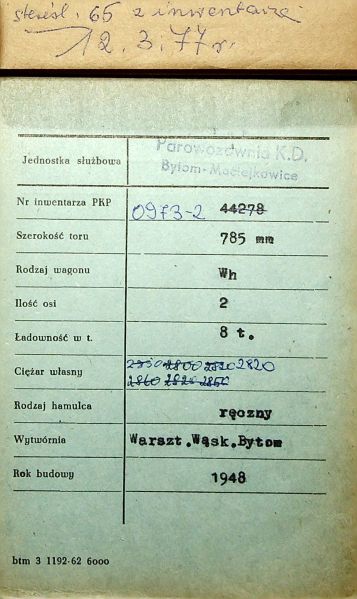 skreśl. 65 z inwentarza
12.3.77 r.
Jednostka służbowa Parowozownia K.D.
Bytom-Maciejkowice
Nr inwentarza PKP 0973-2 44278
Szerokość toru 785 mm
Rodzaj wagonu Wh
Ilość osi 2
Ładowność w t. 8 t.
Ciężar własny 2800 2820 2820
2860 2820 2850
Rodzaj hamulca ręczny
Wytwórnia Warszt.Wąsk.Bytom
Rok budowy 1948
btm 3 1192-62 6000